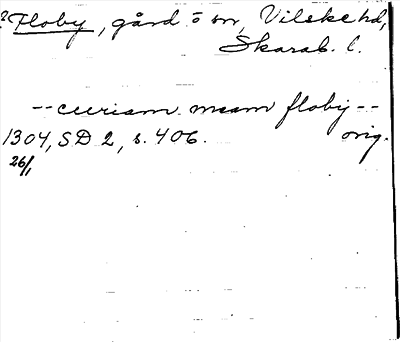 ? Floby, gård o sn, Vilske hd,
Skarab. l.
-- curiam meam floby --
1304, SD 2, s. 406. orig.
26/1